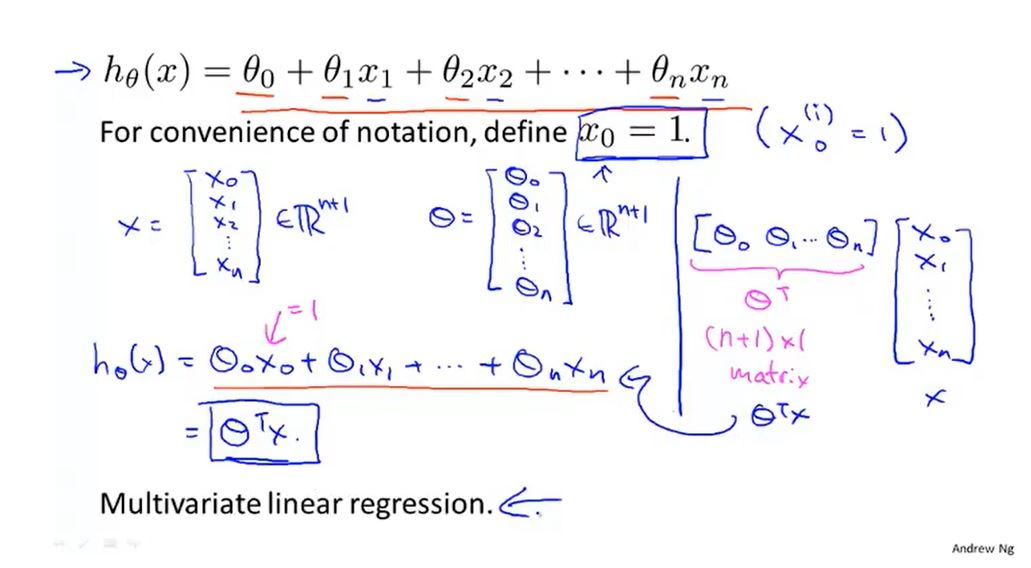 → hθ(x) = θ₀ + θ₁x₁ + θ₂x₂ + ⋯ + θₙxₙ
For convenience of notation, define x₀ = 1. (x₀⁽ⁱ⁾ = 1)
x = [x₀ x₁ x₂ ⋮ xₙ] ∈ ℝⁿ⁺¹ θ = [θ₀ θ₁ θ₂ ⋮ θₙ] ∈ ℝⁿ⁺¹
[θ₀ θ₁ ⋯ θₙ] [x₀ x₁ ⋮ xₙ]
θᵀ
(n+1)×1
matrix
x
θᵀx
= 1
hθ(x) = θ₀x₀ + θ₁x₁ + ⋯ + θₙxₙ ←
= θᵀx.
Multivariate linear regression. ←
Andrew Ng